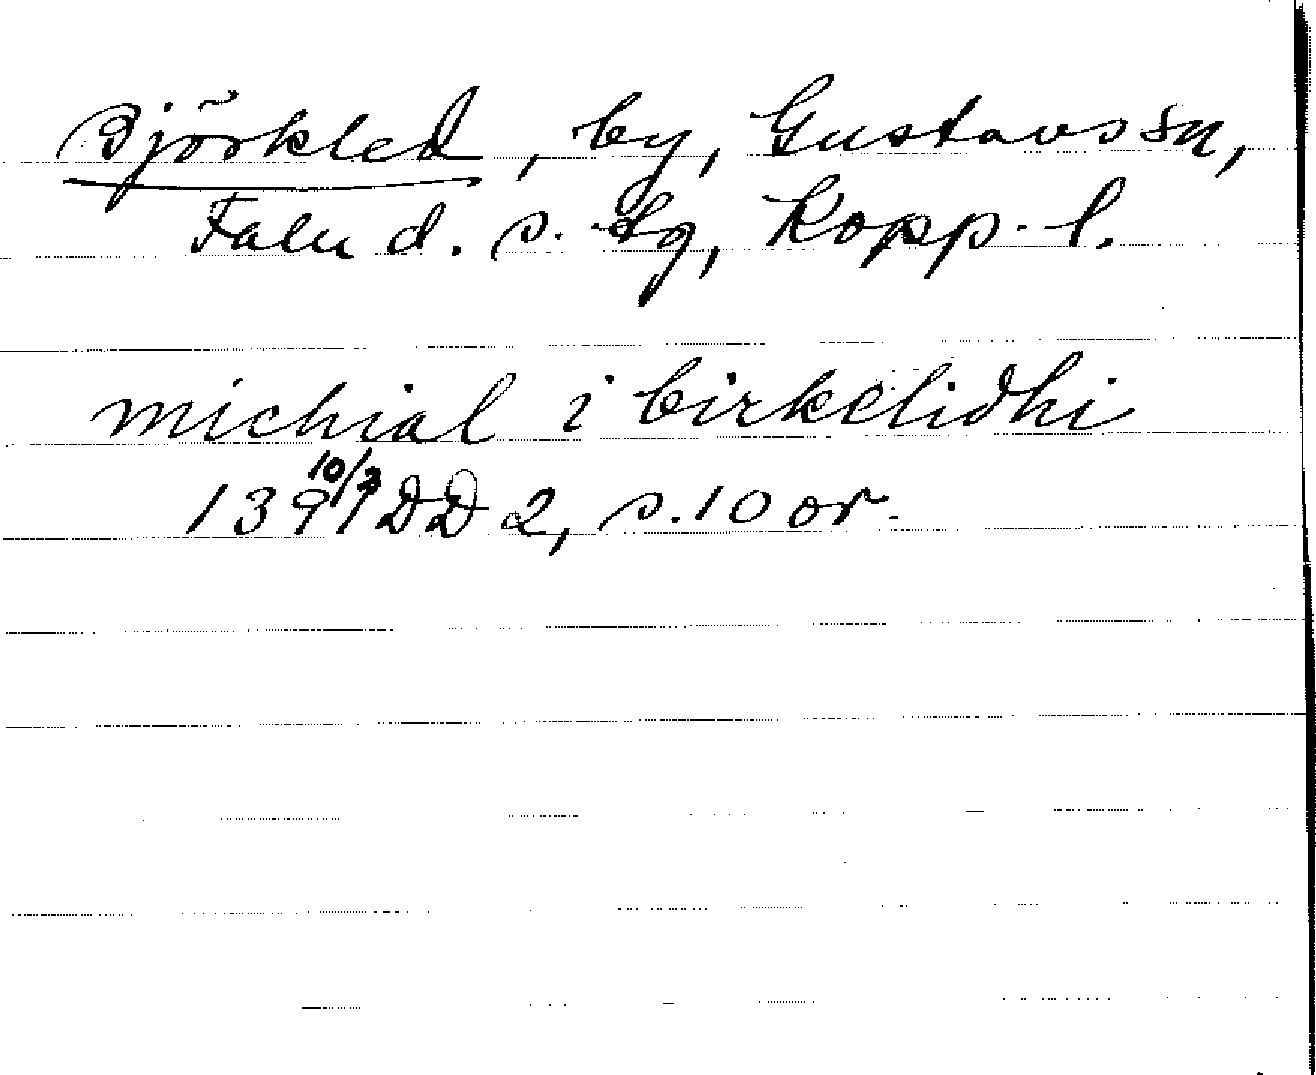 Björkled, by, Gustavs sn,
Falu d. s. tg, Kopp. l.
michial i birkelidhi
10/3
1391 DD 2, s. 10 or.